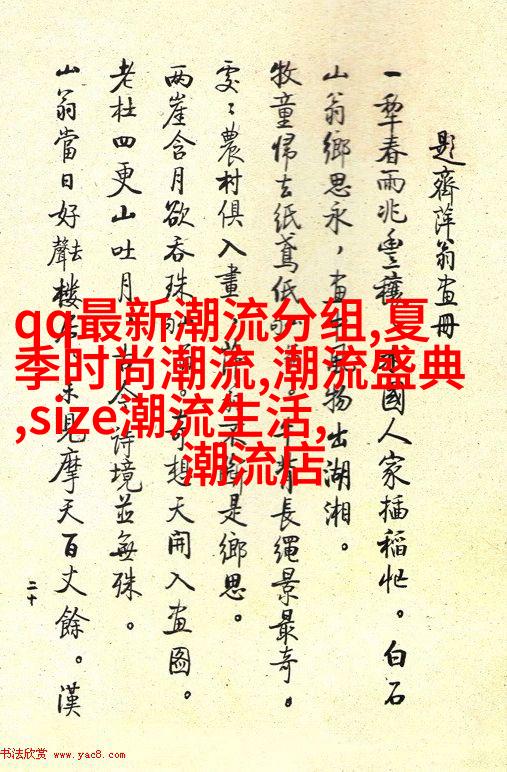 題齊萍翁畫冊
一犁春雨兆豐穰 國人家插稻忙。白石
山翁鄉思永，畫 風物出湖湘。
牧童歸去紙鳶低 牛背長繩景最奇。
處〻農村俱入畫 是鄉思。
兩崖含月欲吞珠 。奇想天開入畫圖。
老杜四更山吐月 古今詩境並無殊。
山翁當日好聲去樓居、未見摩天百丈餘。漢
二十
qq最新潮流分组,夏
季时尚潮流,潮流盛典
,size潮流生活,
潮流店
书法欣赏 www.yac8.com